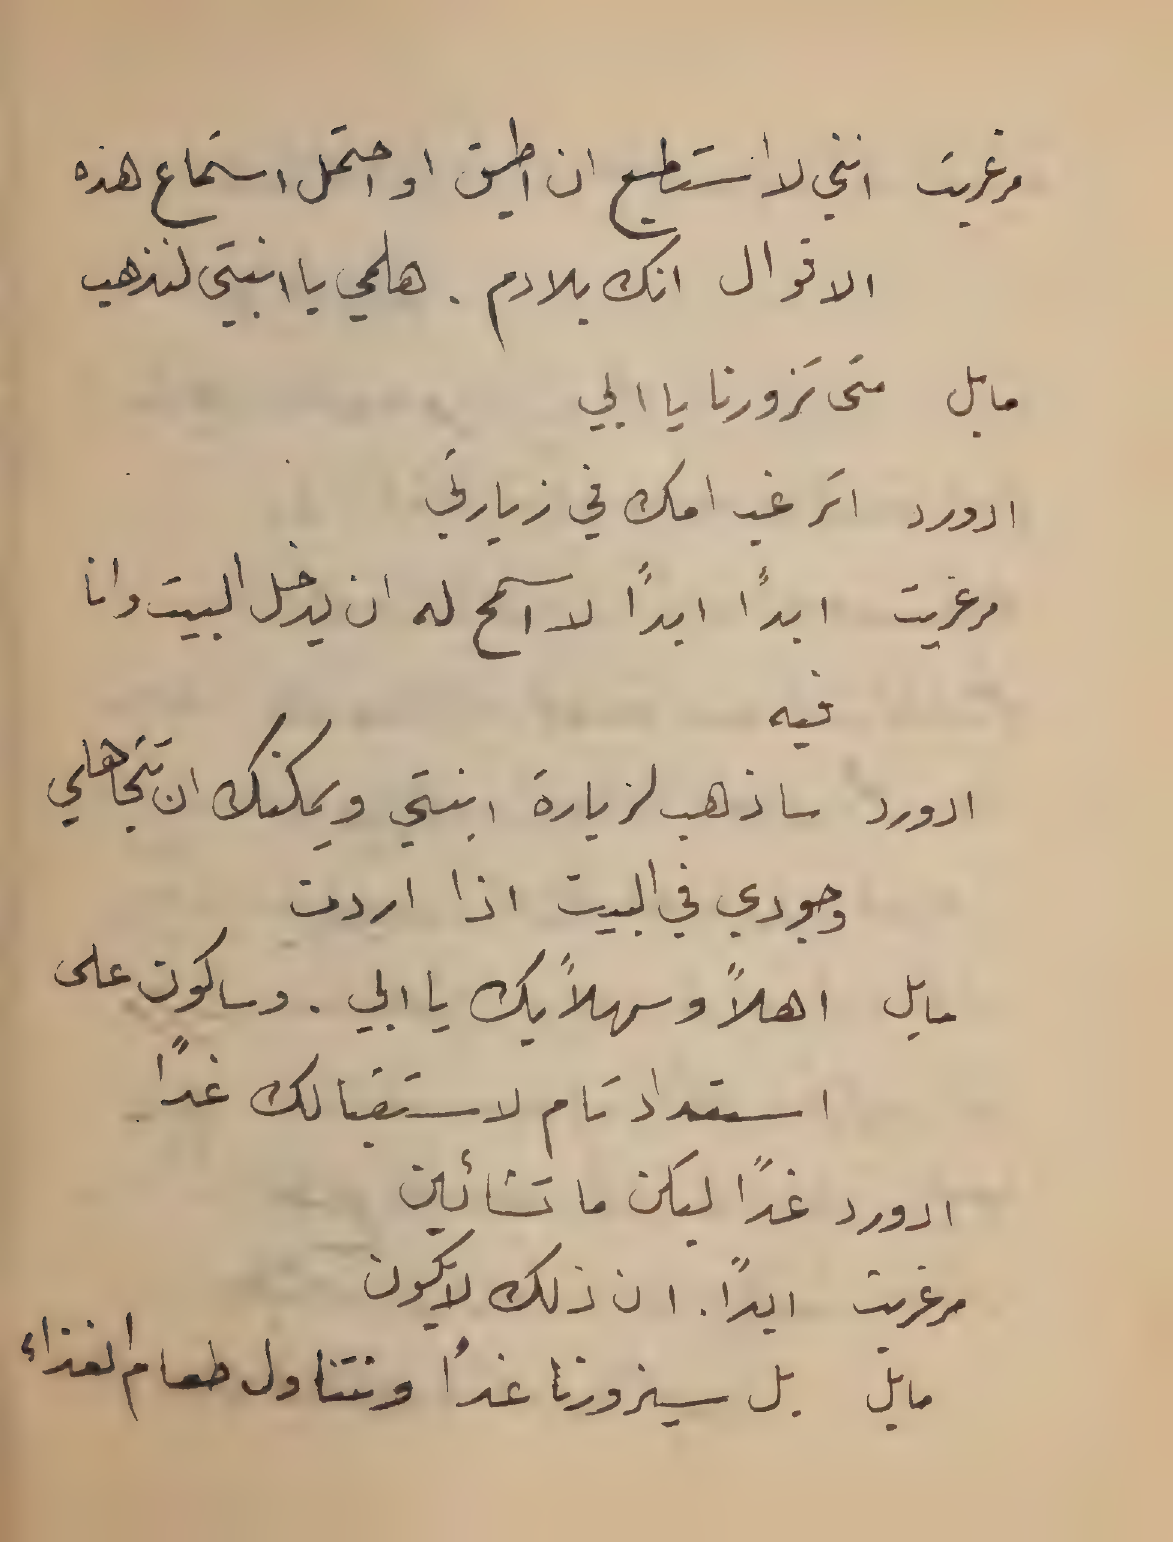 مرغريت انني لا استطيع ان اطيق او احتمل استماع هذه
الاقوال انك بلادم . هلمي يا ابنتي لنذهب
مابل متى تزورنا يا ابي
ادورد اترغب امك في زيارتي
مرغريت ابدًا ابدًا لا اسمح له ان يدخل البيت وانا
فيه
ادورد ساذهب لزيارة ابنتي ويمكنك ان تتجاهلي
وجودي في البيت اذا اردت
مابل اهلاً وسهلاً بك يا ابي . وساكون على
استعداد تام لاستقبالك غدًا
ادورد غدًا ليكن ما تشائين
مرغريت ابدًا . ان ذلك لا يكون
مابل بل سيزورنا غدًا ونتناول طعام الغذاء